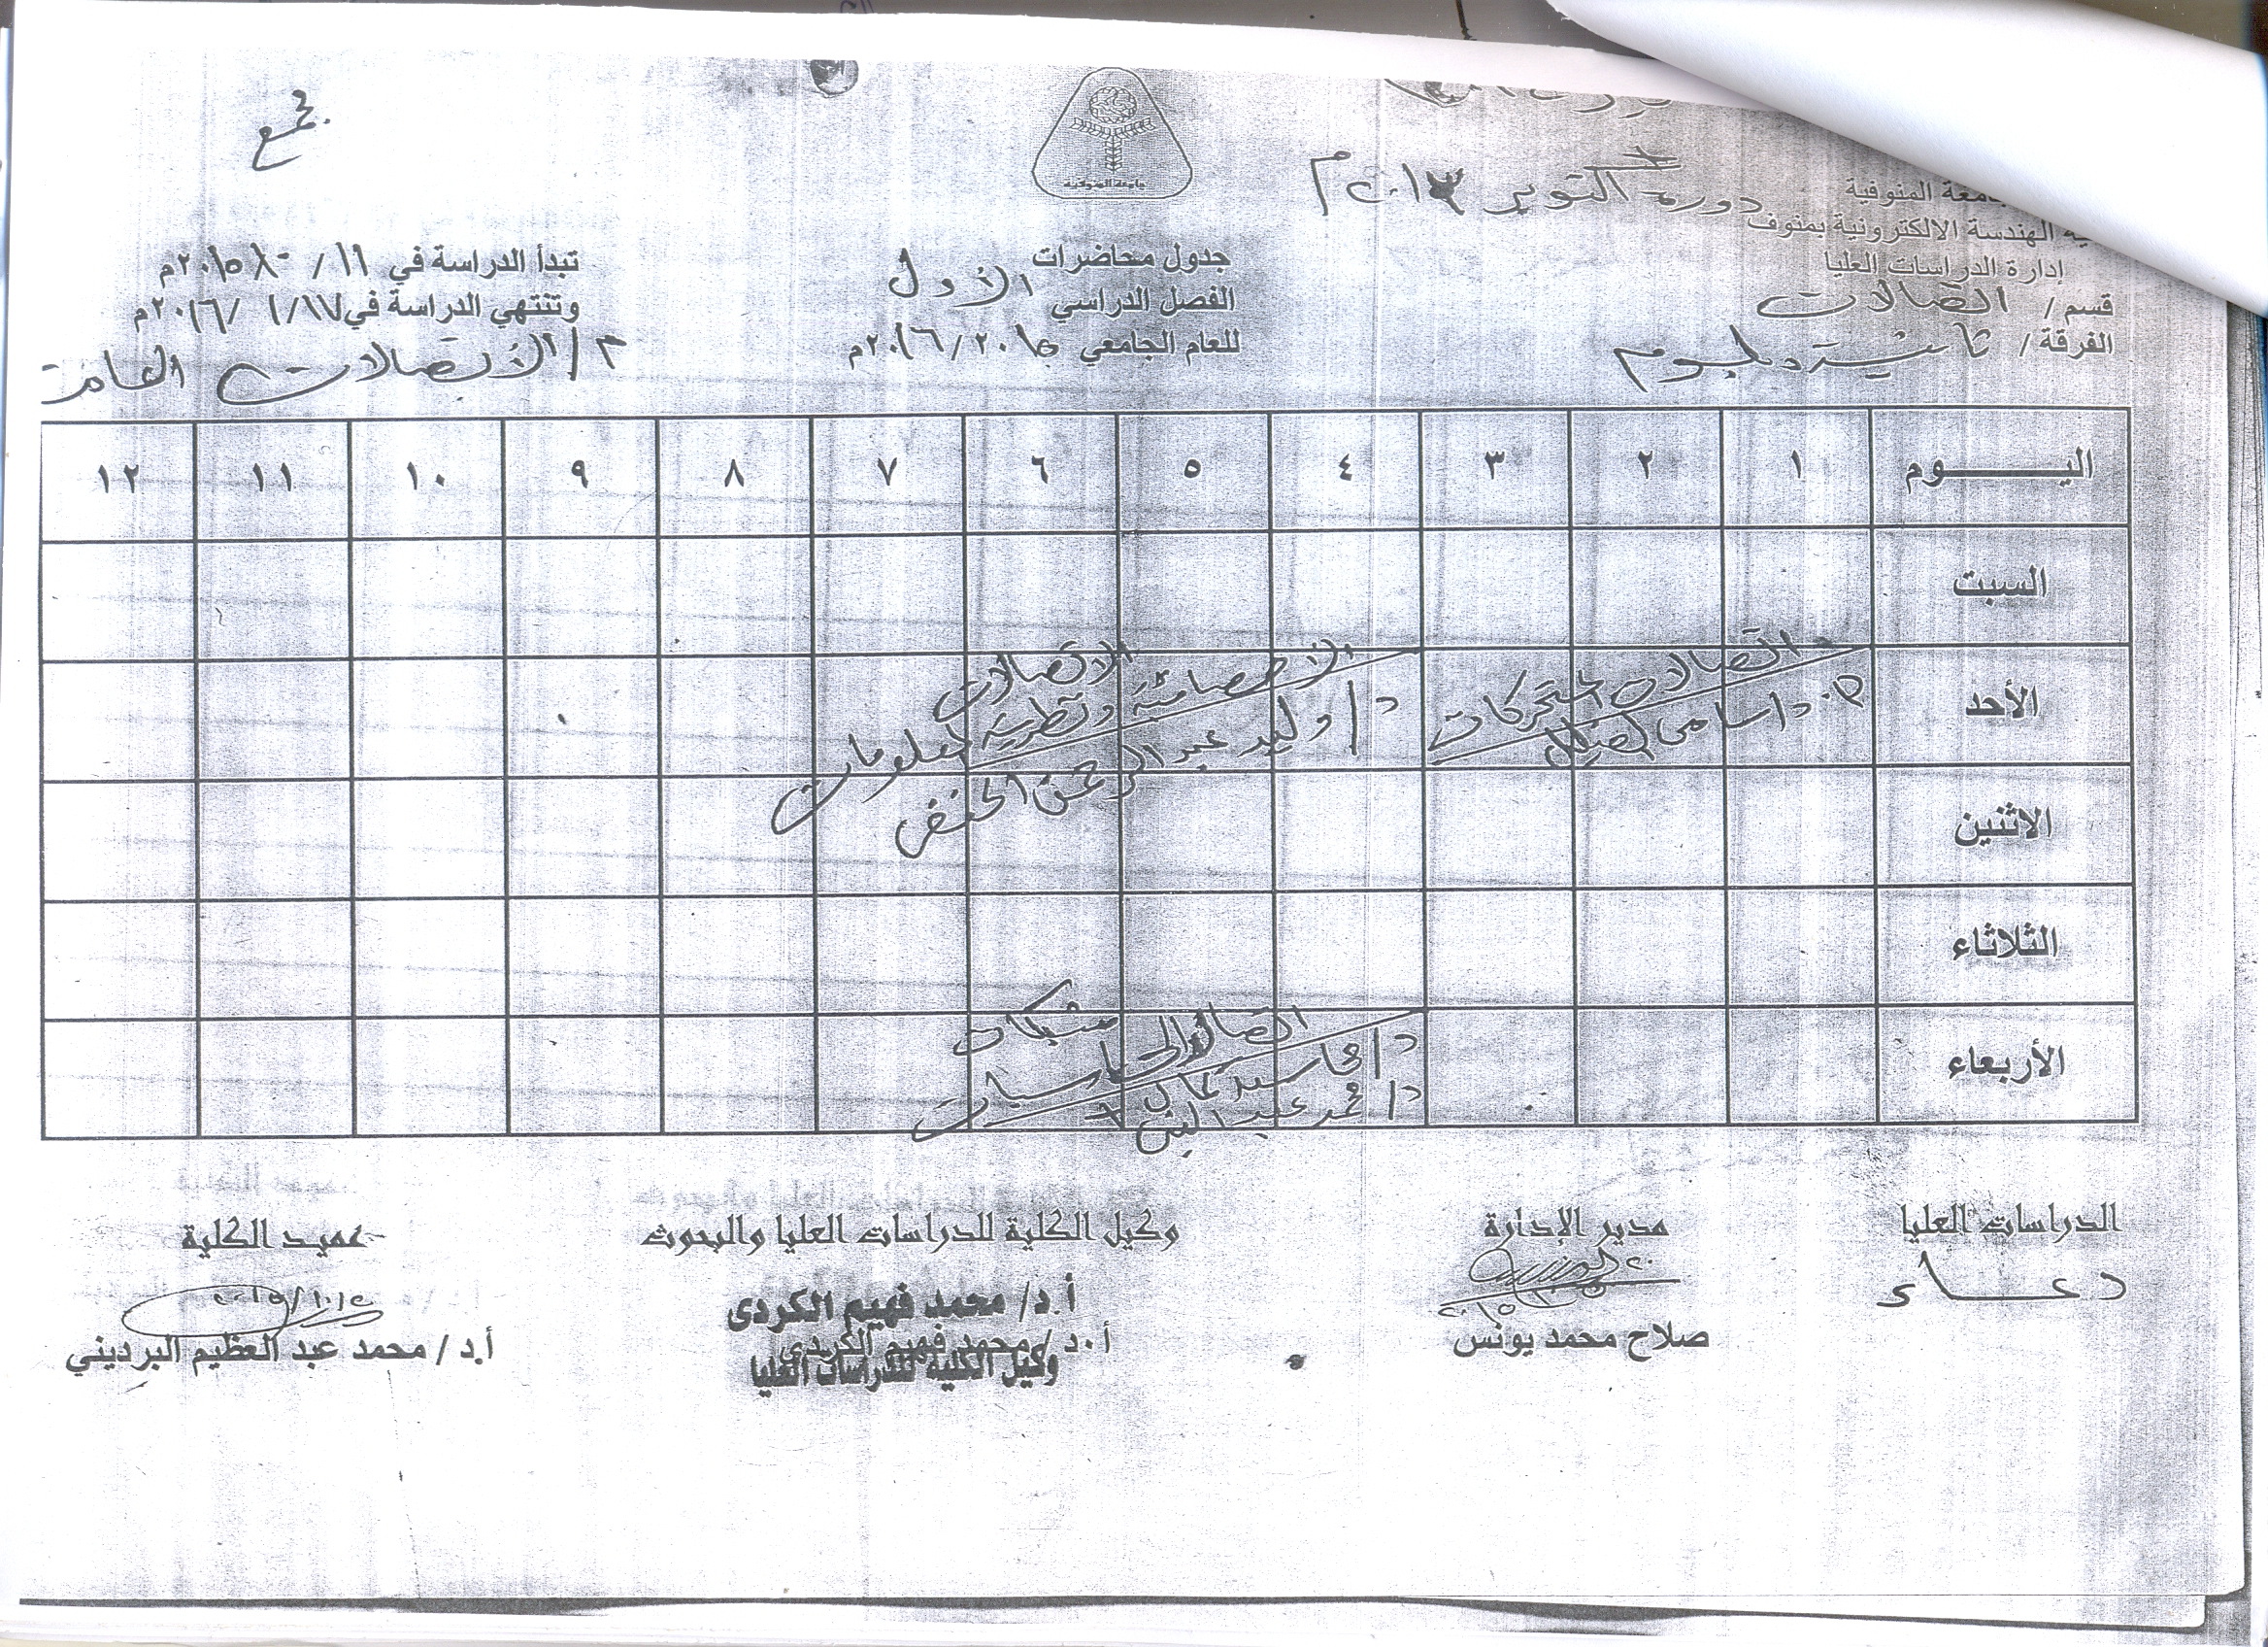 جامعة المنوفية
دورة أكتوبر ٢٠١٣م
جامعة المنوفية
الهندسة الالكترونية بمنوف
إدارة الدراسات العليا
قسم / اتصالات
الفرقة / ثانية دبلوم
جدول محاضرات
الفصل الدراسي الأول
للعام الجامعي ٢٠١٥/٢٠١٦م
تبدأ الدراسة في ١١/١٠/٢٠١٥م
وتنتهي الدراسة في ١/١٧/٢٠١٦م
م/ الأتصالات العامة
اليـــــوم ١ ٢ ٣ ٤ ٥ ٦ ٧ ٨ ٩ ١٠ ١١ ١٢
السبت
الأحد
اتصالات المتحركات
د/ سامى
الاتصالات
الاحصائية ونظرية المعلومات
د/ وليد عبد الرحمن
الاثنين
الثلاثاء
الأربعاء
شبكات
اتصال الحاسبات
د/ محمد عبد النبى
الدراسات العليا
دعاء
مدير الإدارة
صلاح محمد يونس
وكيل الكلية للدراسات العليا والبحوث
أ.د/ محمد فهيم الكردى
أ.د/ محمد فهيم الكردي
وكيل الكلية للدراسات العليا
عميد الكلية
أ.د / محمد عبد العظيم البرديني